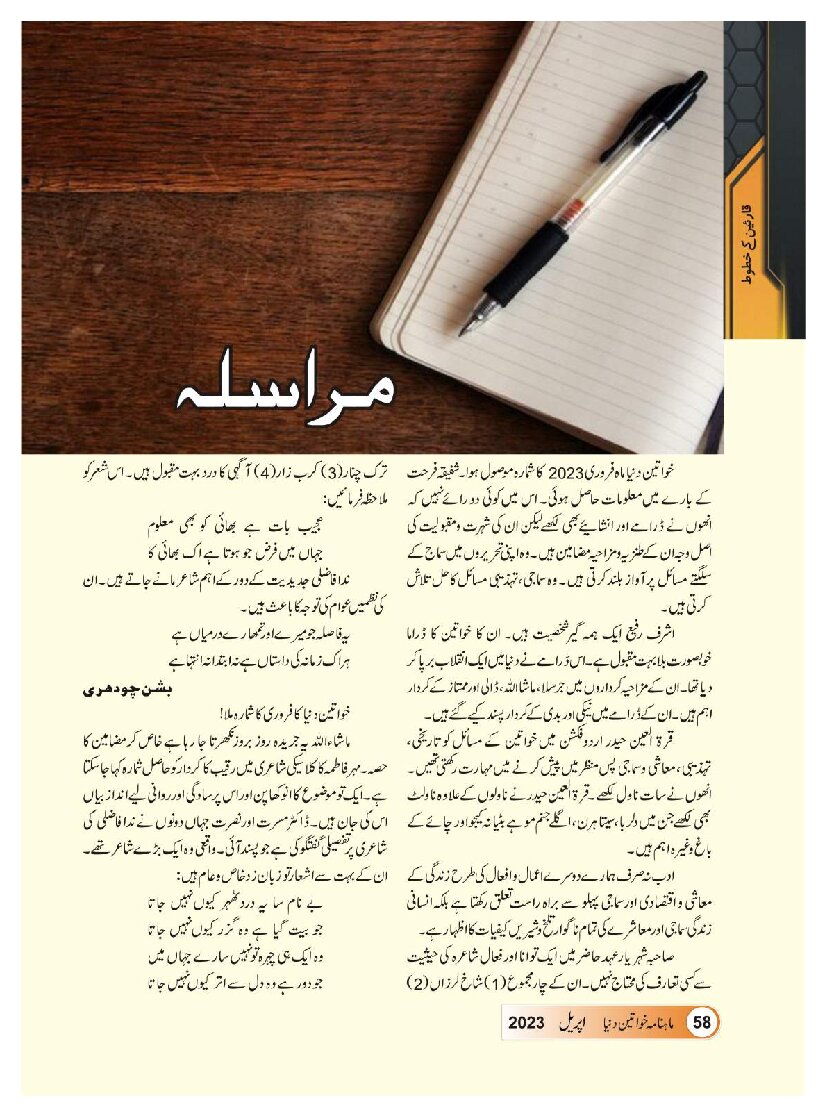 قارئین کے خطوط
مراسلہ
خواتین دنیا ماہ فروری 2023 کا شمارہ موصول ہوا۔ شفیقہ فرحت
کے بارے میں معلومات حاصل ہوئی۔ اس میں کوئی دو رائے نہیں کہ
انھوں نے ڈرامے اور انشائیے بھی لکھے لیکن ان کی شہرت و مقبولیت کی
اصل وجہ ان کے طنزیہ و مزاحیہ مضامین ہیں۔ وہ اپنی تحریروں میں سماج کے
سلگتے مسائل پر آواز بلند کرتی ہیں۔ وہ سماجی، تہذیبی مسائل کا حل تلاش
کرتی ہیں۔
اشرف رفیع ایک ہمہ گیر شخصیت ہیں۔ ان کا خواتین کا ڈراما
خوبصورت بلا بہت مقبول ہے۔ اس ڈرامے نے دنیا میں ایک انقلاب برپا کر
دیا تھا۔ ان کے مزاحیہ کرداروں میں جرسلا، ماشا اللہ، ڈالی اور ممتاز کے کردار
اہم ہیں۔ ان کے ڈرامے میں نیکی اور بدی کے کردار پسند کیے گئے ہیں۔
قرۃ العین حیدر اردو فکشن میں خواتین کے مسائل کو تاریخی،
تہذیبی، معاشی و سماجی پس منظر میں پیش کرنے میں مہارت رکھتی تھیں۔
انھوں نے سات ناول لکھے۔ قرۃ العین حیدر نے ناولوں کے علاوہ ناولٹ
بھی لکھے جن میں دلربا، سیتا ہرن، اگلے جنم موہے بٹیا نہ کیجو اور چائے کے
باغ وغیرہ اہم ہیں۔
ادب نہ صرف، ہمارے دوسرے اعمال و افعال کی طرح زندگی کے
معاشی و اقتصادی اور سماجی پہلو سے براہ راست تعلق رکھتا ہے بلکہ انسانی
زندگی سماجی اور معاشرے کی تمام ناگوار تلخ و شیریں کیفیات کا اظہار ہے۔
صاحبہ شہریار عہد حاضر میں ایک توانا اور فعال شاعرہ کی حیثیت
سے کسی تعارف کی محتاج نہیں۔ ان کے چار مجموع (1) شاخ لرزاں (2)
ترک چنار (3) کرب زار (4) آگہی کا درد بہت مقبول ہیں۔ اس شعر کو
ملاحظہ فرمائیں:
عجیب بات ہے بھائی کو بھی معلوم
جہاں میں فرض جو ہوتا ہے اک بھائی کا
ندا فاضلی جدیدیت کے دور کے اہم شاعر مانے جاتے ہیں۔ ان
کی نظمیں عوام کی توجہ کا باعث ہیں۔
یہ فاصلہ جو میرے اور تمھارے درمیاں ہے
ہر اک زمانہ کی داستاں ہے نہ ابتدا نہ انتہا ہے
بشن چودھری
خواتین دنیا کا فروری کا شمارہ ملا!
ماشاء اللہ یہ جریدہ روز بروز نکھرتا جا رہا ہے خاص کر مضامین کا
حصہ۔ مہر فاطمہ کا کلاسیکی شاعری میں رقیب کا کردار کو حاصل شمارہ کہا جا سکتا
ہے۔ ایک تو موضوع کا انوکھا پن اور اس پر سادگی اور روانی لیے انداز بیاں
اس کی جان ہیں۔ ڈاکٹر مسرت اور نصرت جہاں دونوں نے ندا فاضلی کی
شاعری پر تفصیلی گفتگو کی ہے جو پسند آئی۔ واقعی وہ ایک بڑے شاعر تھے۔
ان کے بہت سے اشعار تو زبان زد خاص و عام ہیں:
بے نام سا یہ درد ٹھہر کیوں نہیں جاتا
جو بیت گیا ہے وہ گزر کیوں نہیں جاتا
وہ ایک ہی چہرہ تو نہیں سارے جہاں میں
جو دور ہے وہ دل سے اتر کیوں نہیں جاتا
58 ماہنامہ خواتین دنیا اپریل 2023